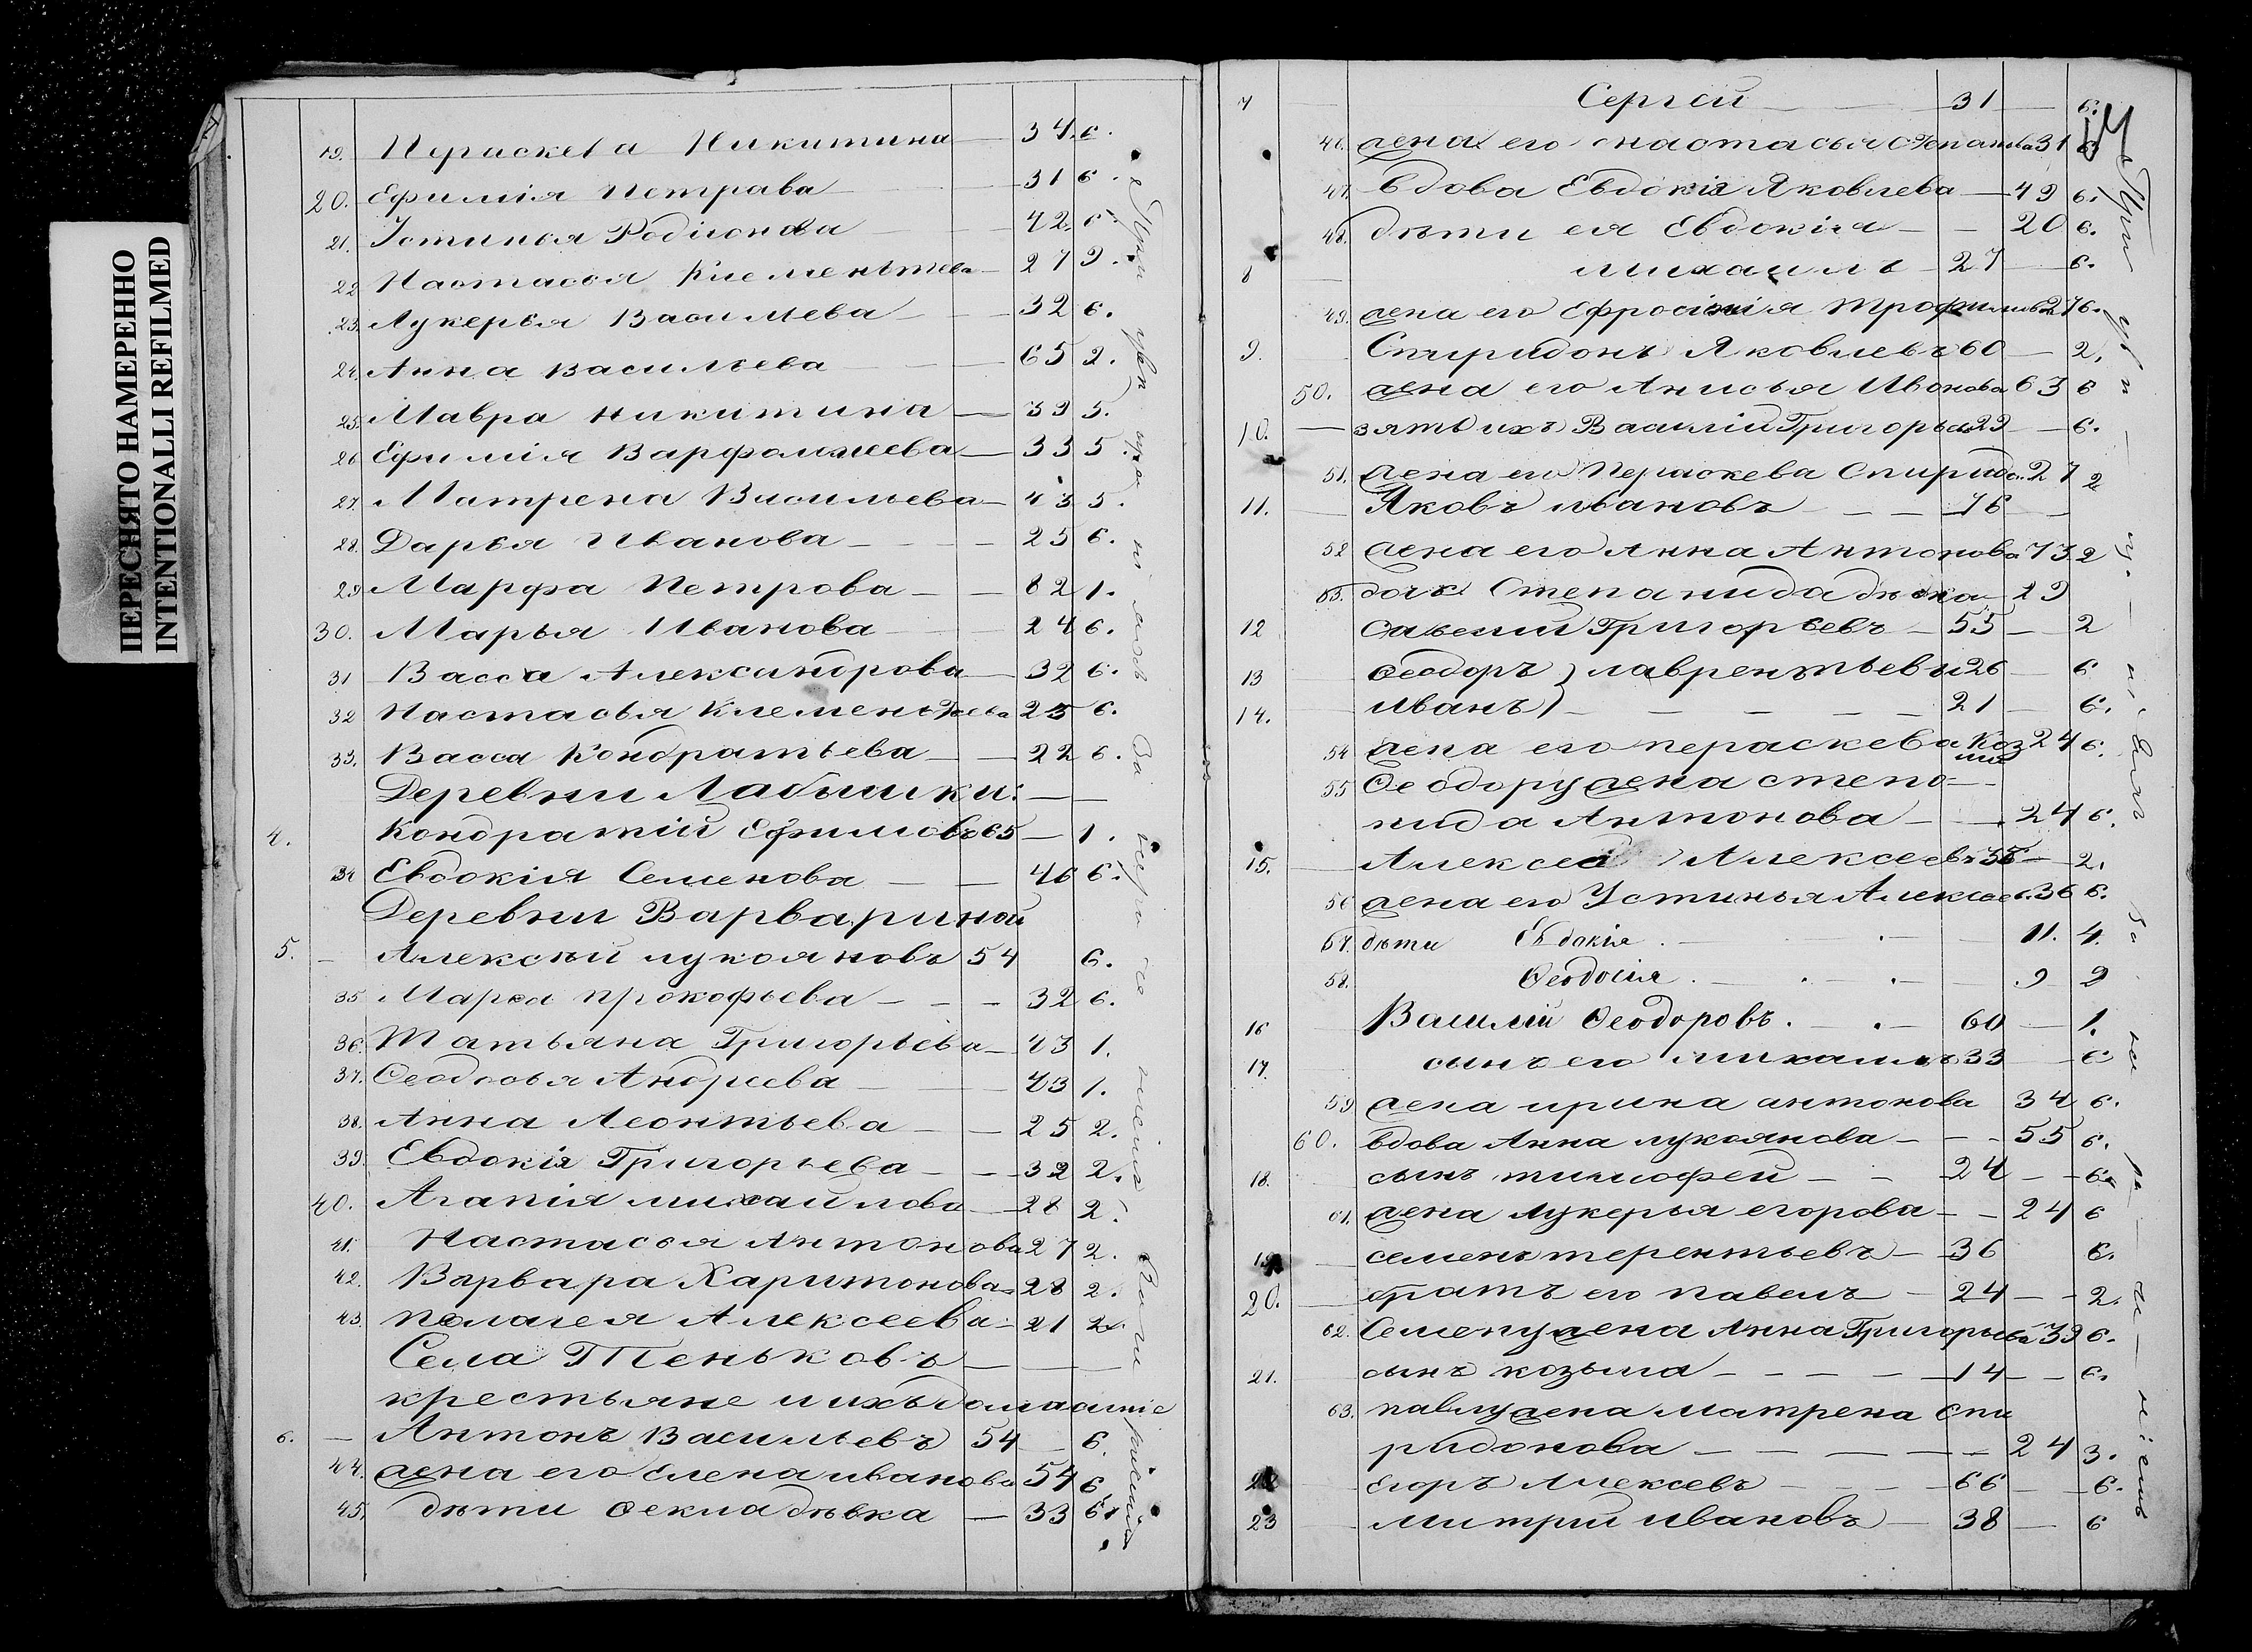 ПЕРЕСНЯТО НАМЕРЕННО
INTENTIONALLI REFILMED
19. Пераскева Никитина 34. 6.
20. Ефимія Петрава 31 6.
21. Устинья Родіонова 42. 6.
22 Настасья Клементьева 27 2.
23. Лукерья Васильева 32 6.
24. Анна Васильева 65 2.
25. Мавра Никитина 39 5.
26 Ефимія Варфоломеева 33 5.
27. Матрена Васильева 43 5.
28. Дарья Иванова 25 6.
29 Марфа Петрова 82 1.
30. Марья Иванова 24 6.
31 Васса Александрова 32 6.
32 Настасья Клементьева 25 6.
33. Васса Кондратьева 22 6.
Деревни Лабышки:
4. Кондратій Ефимовъ 65 1.
34 Евдокія Семенова 46 6.
Деревни Варвариной
5. Алексѣй Лукояновъ 54 6.
35 Марья Прокофьева 32 6.
36. Татьяна Григорьева 43 1.
37. Ѳеодосья Андреева 43 1.
38. Анна Леонтьева 25 2.
39. Евдокія Григорьева 32 2.
40. Агапія Михайлова 28 2.
41. Настасья Антонова 27 2.
42. Варвара Харитонова 28 2.
43. Пелагея Алексеева 21 2.
Села Теньковъ
крестьяне и ихъ домашніе
6. Антонъ Васильевъ 54 6.
44. жена его Елена Иванова 54 6
45. дѣти Ѳекла дѣвка 33 6.
7 Сергей 31 6.
46. жена его Настасья Степанова 31 6
47. вдова Евдокія Яковлева 49 6.
48. дѣти ея Евдокія 20 6.
8 Михаилъ 27 6.
49. жена его Ефросинія Трофимова 27 6.
9. Спиридонъ Яковлевъ 60 2.
50. жена его Анисья Иванова 63 6
10. зять ихъ Василій Григорьев 29 6.
51. жена его Пераскева Спиридо. 27 2
11. Яковъ Ивановъ 76
52 жена его Анна Антонова 73 2
53. дочь Степанида дѣвка 19
12 Савелий Григорьевъ 55 2
13 Ѳеодоръ) Лаврентьевы 26 6
14. Иванъ) 21 6.
54 жена его Пераскева Козмина 24 6.
55 Ѳеодору жена Степа-
нида Антонова 24 6.
15. Алексей Алексеевъ 35 2.
56 жена его Устинья Алексеев. 36 6.
57. дѣти Евдокія 11. 4.
58. Ѳеодосія 9 2
16 Василій Ѳеодоровъ 60 1.
17. сынъ его Михаилъ 33 6
59 жена Ирина Антонова 34 6.
60. вдова Анна Лукоянова 55 6.
18. сынъ Тимофей 24 6
61. жена Лукерья Егорова 24 6
19 Семенъ Терентьевъ 36 6.
20. братъ его Павелъ 24 2.
62. Семену жена Анна Григорьева 39 6.
21. сынъ Козьма 14 6.
63. Павлу жена Матрена Спи
ридонова 24 3.
22 Егоръ Алексевъ 66 6.
23 Митрій Ивановъ 38 6